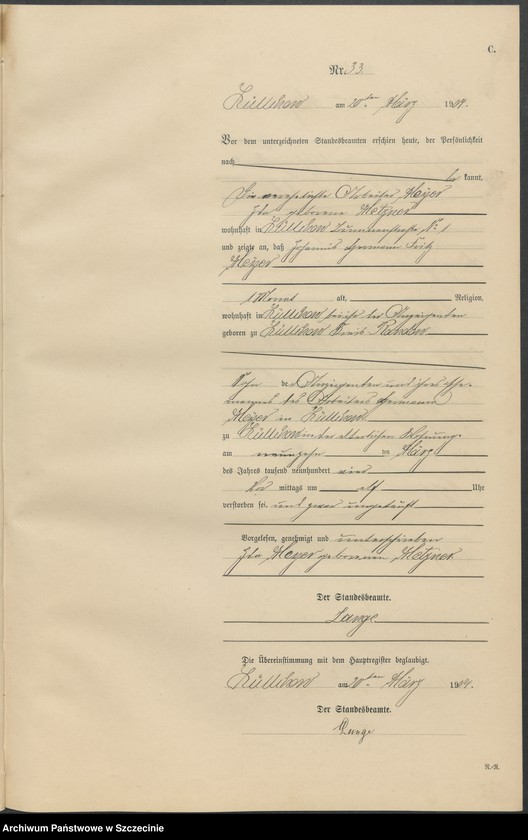 C.
Nr. 33.
Züllchow am 20ten März 1904.
Vor dem unterzeichneten Standesbeamten erschien heute, der Persönlichkeit
nach
be kannt,
die verehelichte Arbeiter Meyer
Ida geborene Metzner
wohnhaft in Züllchow № 1
und zeigte an, daß Johannes Hermann Fritz
Meyer
1 Monat alt, Religion,
wohnhaft in Züllchow bei der Anzeigenden
geboren zu Züllchow Kreis Randow
Sohn der Anzeigenden und ihres Ehe-
mannes des Arbeiters Hermann
Meyer in Züllchow
zu Züllchow in der elterlichen Wohnung
am neunzehn ten März
des Jahres tausend neunhundert vier
Vor mittags um elf Uhr
verstorben sei. und zwar ungetauft
Vorgelesen, genehmigt und unterschrieben
Ida Meyer geborenen Metzner
Der Standesbeamte.
Lange
Die Übereinstimmung mit dem Hauptregister beglaubigt.
Züllchow am 20ten März 1904.
Der Standesbeamte.
Lange
R.-R.
Archiwum Państwowe w Szczecinie